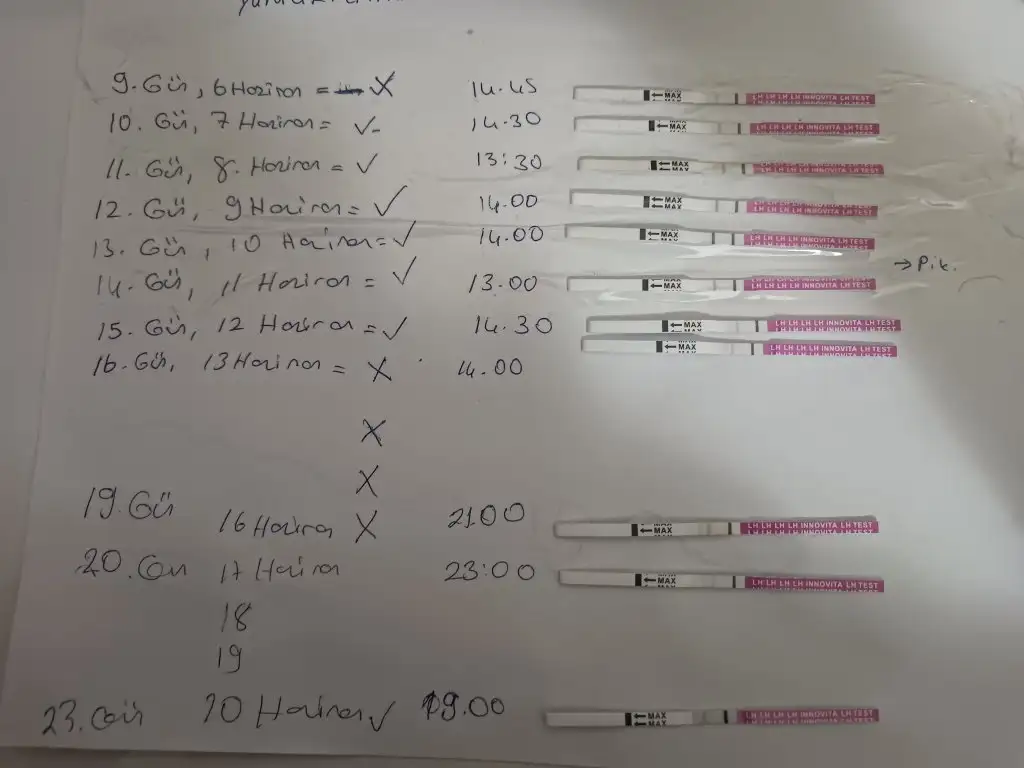 9. Gün, 6 Haziran = X 14.45 ←MAX LH LH LH LH INNOVITA LH TEST
10. Gün, 7 Haziran = ✓- 14.30 ←MAX LH LH LH LH INNOVITA LH TEST
11. Gün, 8. Haziran = ✓ 13:30 ←MAX LH LH LH LH INNOVITA LH TEST
12. Gün, 9 Haziran = ✓ 14.00 ←MAX LH LH LH LH INNOVITA LH TEST
13. Gün, 10 Haziran = ✓ 14.00 ←MAX LH LH LH LH INNOVITA LH TEST
→ Pik.
14. Gün, 11 Haziran = ✓ 13.00 ←MAX LH LH LH LH INNOVITA LH TEST
15. Gün, 12 Haziran = ✓ 14.30 ←MAX LH LH LH LH INNOVITA LH TEST
16. Gün, 13 Haziran = X 14.00 ←MAX LH LH LH LH INNOVITA LH TEST
X
X
19. Gün 16 Haziran X 21.00 ←MAX LH LH LH LH INNOVITA LH TEST
20. Gün 17 Haziran 23:00 ←MAX LH LH LH LH INNOVITA LH TEST
18
19
23. Gün 20 Haziran ✓ 19.00 ←MAX LH LH LH LH INNOVITA LH TEST